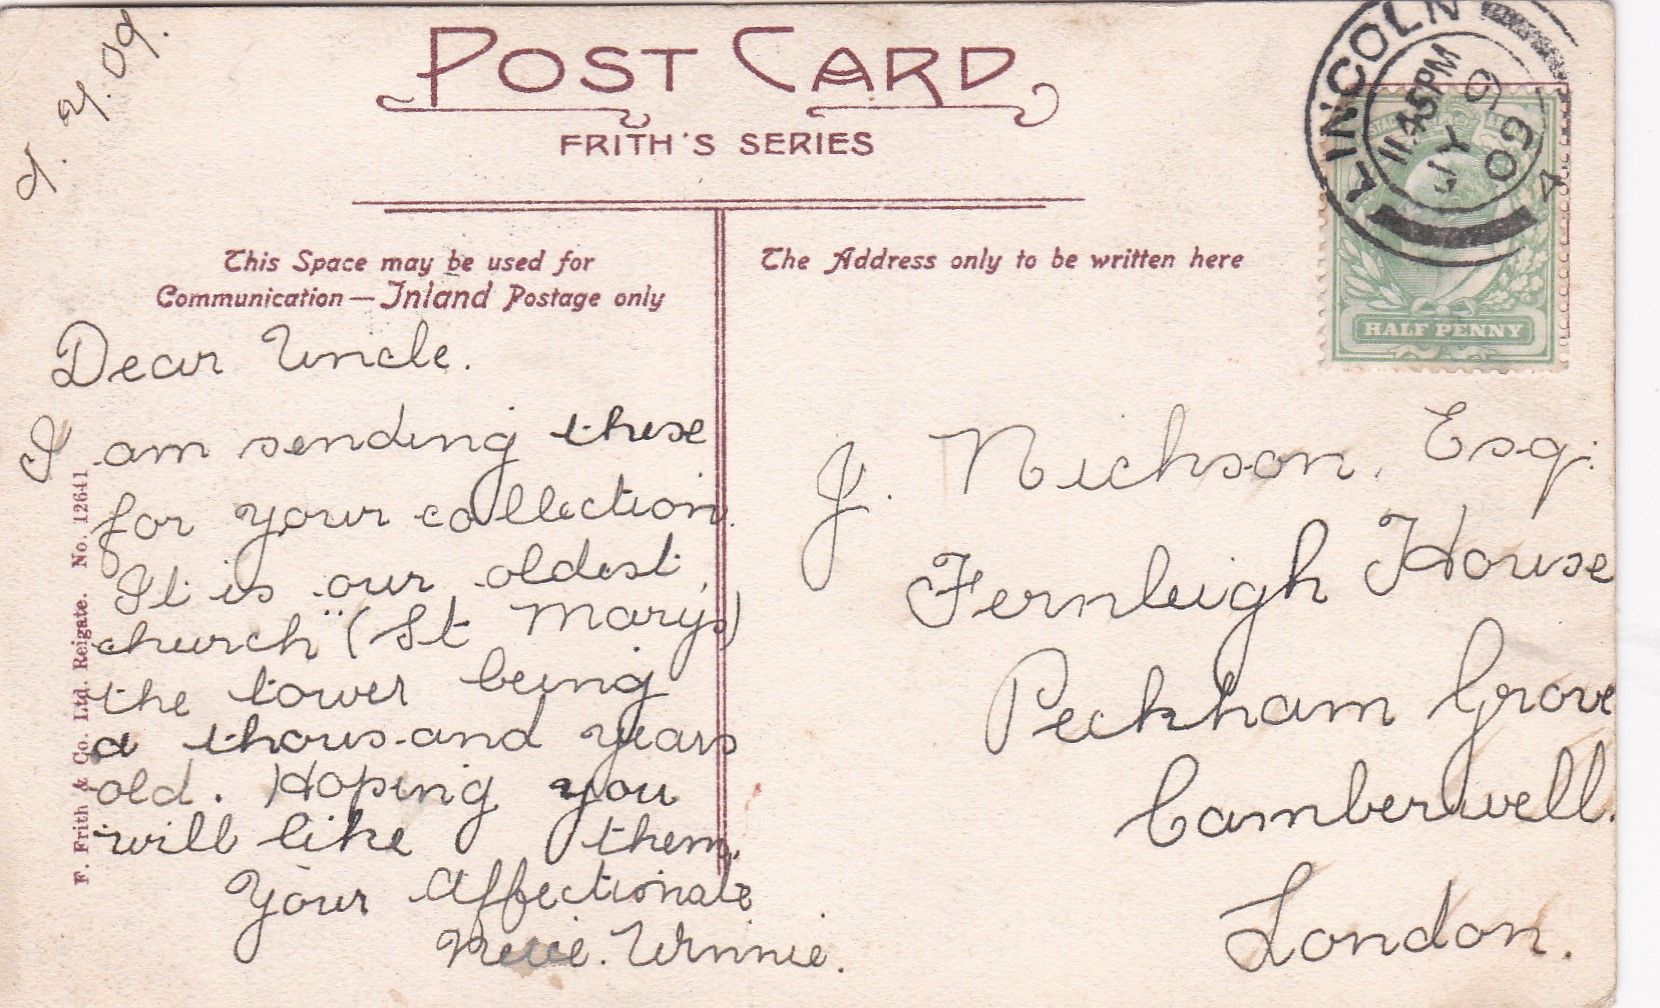 9.7.09.
POST CARD
FRITH'S SERIES
LINCOLN
11.45PM
JY 9
09
4
HALF PENNY
This Space may be used for
Communication — Inland Postage only
The Address only to be written here
Dear Uncle.
I am sending these
for your collection.
It is our oldest
church" (St Mary's)
the tower being
a thousand years
old. Hoping you
will like them.
Your affectionate
Niece. Winnie.
J. Nickson. Esq.
Fernleigh House
Peckham Grove
Camberwell.
London.
F. Frith & Co. Ltd. Reigate. No. 12641